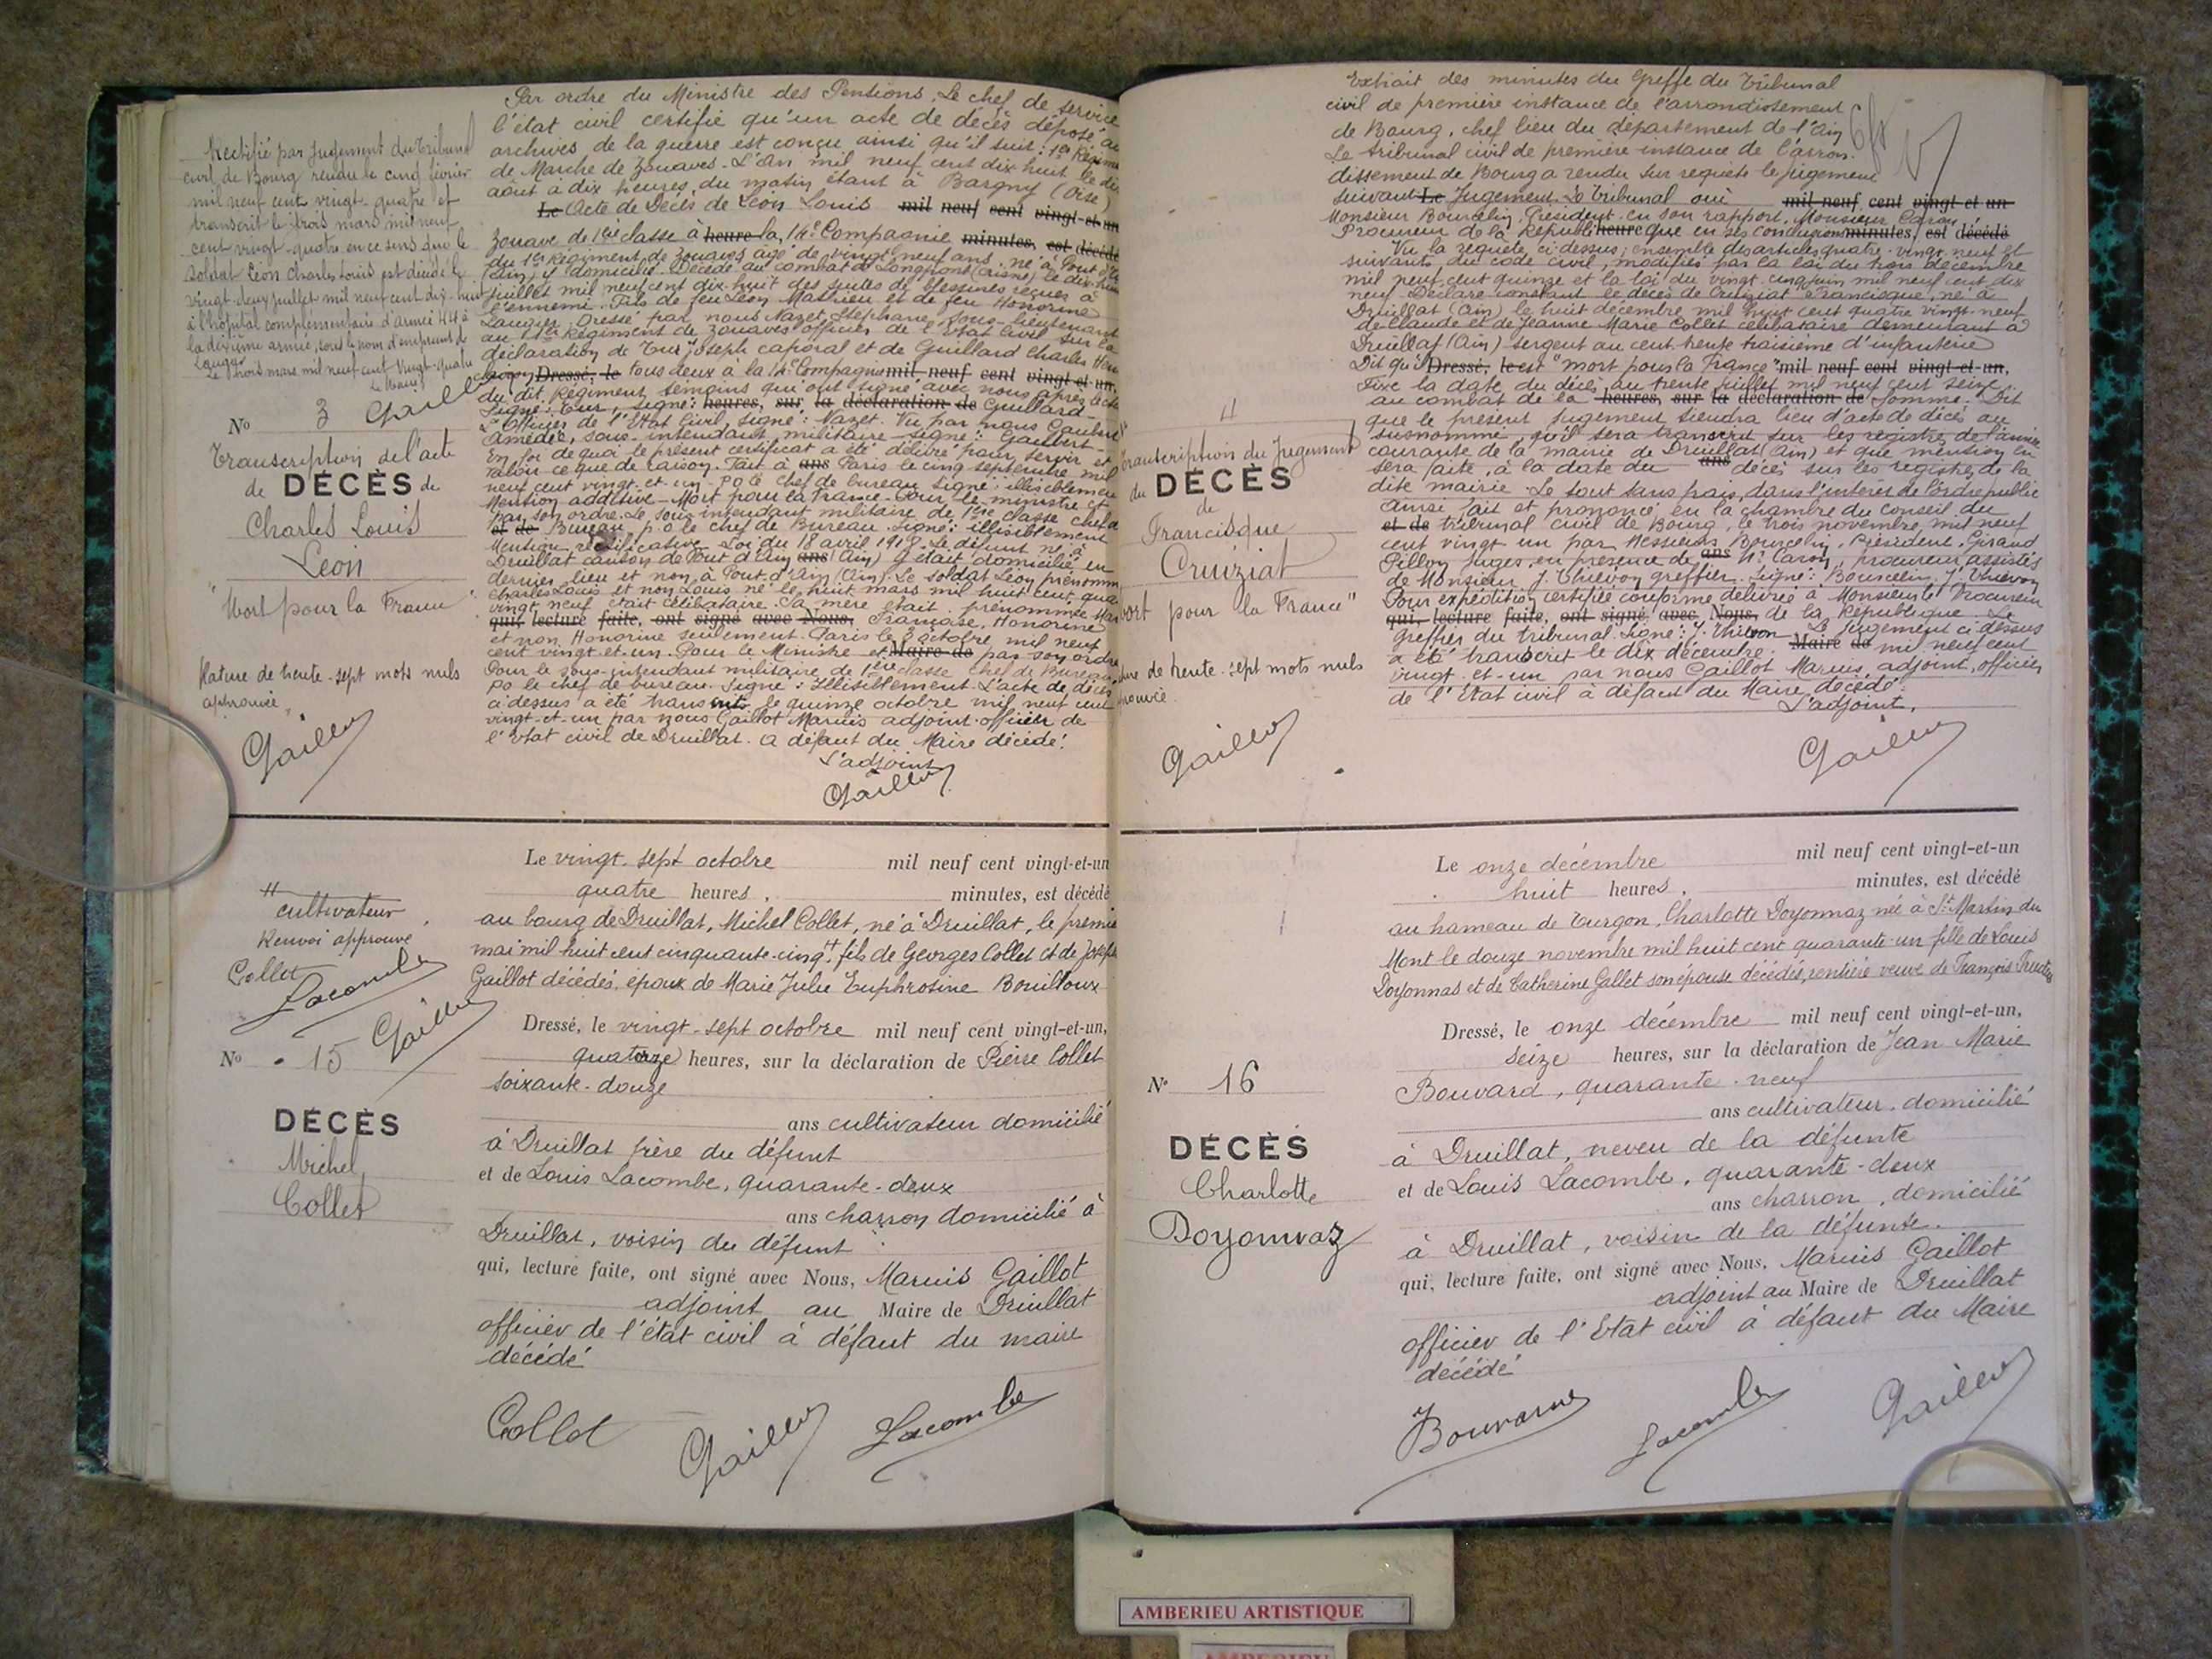 Rectifié par jugement du Tribunal
civil de Bourg rendu le cinq février
mil neuf cent vingt-quatre et
transcrit le trois mars mil neuf
cent vingt-quatre en ce sens que le
soldat Léon Charles Louis est décédé le
vingt-deux juillet mil neuf cent dix-huit
à l'hôpital complémentaire d'armée 44 à
la dixième armée, sous le nom d'emprunt de
Laugier
Le trois mars mil neuf cent vingt-quatre
Le Maire
Gaillot
No 3
Transcription de l'acte
de DÉCÈS de
Charles Louis
Léon
"Mort pour la France"
Rature de trente-sept mots nuls
approuvée
Gaillot
Par ordre du Ministre des Pensions. Le chef de service
l'état civil certifie qu'un acte de décès déposé au
archives de la guerre est conçu ainsi qu'il suit: 1er Régime
de Marche de Zouaves. L'an mil neuf cent dix huit le dix
août à dix heures du matin étant à Bargny (Oise)
Le Acte de Décès de Léon Louis mil neuf cent vingt-et-un
Zouave de 1ère classe à heure la 14e Compagnie minutes, est décédé
du 1er Régiment de Zouaves âgé de vingt neuf ans, né à Pont d'Ain
(Ain) y domicilié. Décédé au combat de Longpont (Aisne) le dix-huit
juillet mil neuf cent dix-huit des suites de blessures reçues à
l'ennemi. Fils de feu Léon Mathieu et de feu Honorine
Laugier. Dressé par nous Nazet, Stéphane, sous-lieutenant
au 1er Régiment de Zouaves officier de l'état civil sur la
déclaration de Tur Joseph caporal et de Guillard Charles
Dressé, le tous deux à la 14e Compagnie mil neuf cent vingt-et-un,
du dit Régiment, témoins qui ont signé avec nous après lecture
Signé: Tur, signé: heures, sur la déclaration de Guillard
L'Officier de l'Etat Civil, signé: Nazet. Vu par nous Gaubert
Amédée, sous-intendant militaire. signé: Gaubert
En foi de quoi le présent certificat a été délivré pour servir et
valoir ce que de raison. Fait à ans Paris le cinq septembre mil
neuf cent vingt-et-un. po le chef de bureau signé: illisiblement
Mention additive - Mort pour la France - Pour le ministre et
par son ordre. Le sous intendant militaire de 1ère classe chef de
et de Bureau p. o le chef de Bureau. Signé: illisiblement
Mention rectificative. Loi du 18 avril 1918. Le défunt né à
Druillat canton de Pont d'Ain ans (Ain) y était domicilié en
dernier lieu et non à Pont d'Ain (Ain). Le soldat Léon prénommé
Charles Louis et non Louis né le huit mars mil huit cent quatre
vingt neuf était célibataire. Sa mère était prénommée
qui, lecture faite, ont signé avec Nous, Françoise, Honorine
et non Honorine seulement. Paris le 3 octobre mil neuf
cent vingt-et-un. Pour le Ministre et Maire de par son ordre
Pour le sous-intendant militaire de 1ère classe chef de Bureau
po le chef de bureau. Signé: Illisiblement. L'acte de décès
ci dessus a été transcrit le quinze octobre mil neuf cent
vingt-et-un par nous Gaillot Marius adjoint officier de
l'Etat civil de Druillat. a défaut du Maire décédé.
L'adjoint
Gaillot
cultivateur
Renvoi approuvé
Collet
Lacombe
Gaillot
No 15
DÉCÈS
Michel
Collet
Le vingt-sept octobre mil neuf cent vingt-et-un
quatre heures, minutes, est décédé
au bourg de Druillat, Michel Collet, né à Druillat, le premier
mai mil huit cent cinquante-cinq, fils de Georges Collet et de Josèphe
Gaillot décédés, époux de Marie Julie Euphrosine Bouilloux
Dressé, le vingt-sept octobre mil neuf cent vingt-et-un,
quatorze heures, sur la déclaration de Pierre Collet
soixante-douze
ans cultivateur domicilié
à Druillat frère du défunt
et de Louis Lacombe, quarante-deux
ans charron domicilié à
Druillat, voisin du défunt
qui, lecture faite, ont signé avec Nous, Marius Gaillot
adjoint au Maire de Druillat
officier de l'état civil à défaut du maire
décédé
Collet Gaillot Lacombe
4
Transcription du Jugement
du DÉCÈS
de
Francisque
Cruiziat
"Mort pour la France"
Rature de trente-sept mots nuls
approuvée
Gaillot
Extrait des minutes du Greffe du Tribunal
civil de première instance de l'arrondissement
de Bourg, chef lieu du département de l'Ain
Le tribunal civil de première instance de l'arron-
dissement de Bourg a rendu sur requête le jugement
suivant Le Jugement. Le Tribunal ouï mil neuf cent vingt-et-un
Monsieur Bourcelin, Président en son rapport, Monsieur Caron
Procureur de la Républi heure que en ses conclusions minutes, est décédé
Vu la requête ci-dessus; ensemble des articles quatre-vingt-neuf et
suivants du code civil, modifiés par la loi du trois décembre
mil neuf cent quinze et la loi du vingt cinq juin mil neuf cent dix
neuf. Déclare constant le décès de Cruiziat Francisque, né à
Druillat (Ain) le huit décembre mil huit cent quatre vingt-neuf
de Claude et de Jeanne Marie Collet célibataire demeurant à
Druillat (Ain) sergent au cent trente troisième d'infanterie
Dit qu'il Dressé, le est "mort pour la France" mil neuf cent vingt-et-un,
Fixe la date du décès au trente juillet mil neuf cent seize
au combat de la heures, sur la déclaration de Somme. Dit
que le présent jugement tiendra lieu d'acte de décès au
susnommé, qu'il sera transcrit sur les registre de l'année
courante de la mairie de Druillat (Ain) et que mention en
sera faite, à la date du ans décès sur les registres de la
dite mairie. Le tout sans frais, dans l'intérêt de l'ordre public
Ainsi fait et prononcé en la chambre du conseil du
et de tribunal civil de Bourg, le trois novembre mil neuf
cent vingt un par Messieurs Bourcelin, Président, Girand
Pillon juges, en présence de ans Mr Caron, procureur, assistés
de Monsieur J. Thievon greffier. Signé: Bourcelin, J. Thievon
Pour expédition certifiée conforme délivrée à Monsieur le Procureur
qui, lecture faite, ont signé avec Nous, de la République. Le
greffier du tribunal. Signé: J. Thievon Le jugement ci dessus
a été transcrit le dix décembre Maire de mil neuf cent
vingt-et-un par nous Gaillot Marius, adjoint, officier
de l'Etat civil à défaut du Maire décédé.
L'adjoint,
Gaillot
No 16
DÉCÈS
Charlotte
Doyonnaz
Le onze décembre mil neuf cent vingt-et-un
huit heures, minutes, est décédé
au hameau de Turgon, Charlotte Doyonnaz née à St Martin du
Mont le douze novembre mil huit cent quarante-un fille de Louis
Doyonnas et de Catherine Gallet son épouse décédés, rentière veuve de François
Dressé, le onze décembre mil neuf cent vingt-et-un,
seize heures, sur la déclaration de Jean Marie
Bouvard, quarante-neuf
ans cultivateur, domicilié
à Druillat, neveu de la défunte
et de Louis Lacombe, quarante-deux
ans charron, domicilié
à Druillat, voisin de la défunte.
qui, lecture faite, ont signé avec Nous, Marius Gaillot
adjoint au Maire de Druillat
officier de l'Etat civil à défaut du Maire
décédé
Bouvard Lacombe Gaillot
AMBERIEU ARTISTIQUE
AMBERIEU